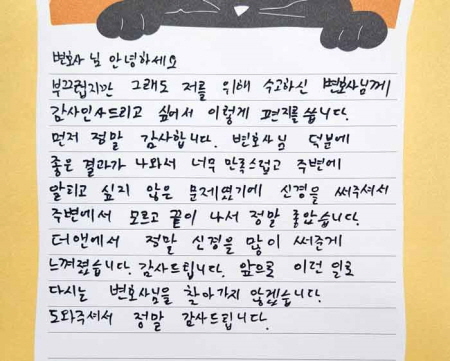 변호사 님 안녕하세요
부끄럽지만 그래도 저를 위해 수고하신 변호사님께
감사인사드리고 싶어서 이렇게 편지를 씁니다.
먼저 정말 감사합니다. 변호사님 덕분에
좋은 결과가 나와서 너무 만족스럽고 주변에
알리고 싶지 않은 문제였기에 신경을 써주셔서
주변에서 모르고 끝이 나서 정말 좋았습니다.
더앤에서 정말 신경을 많이 써준게
느껴졌습니다. 감사드립니다. 앞으로 이런 일로
다시는 변호사님을 찾아가지 않겠습니다.
도와주셔서 정말 감사드립니다.